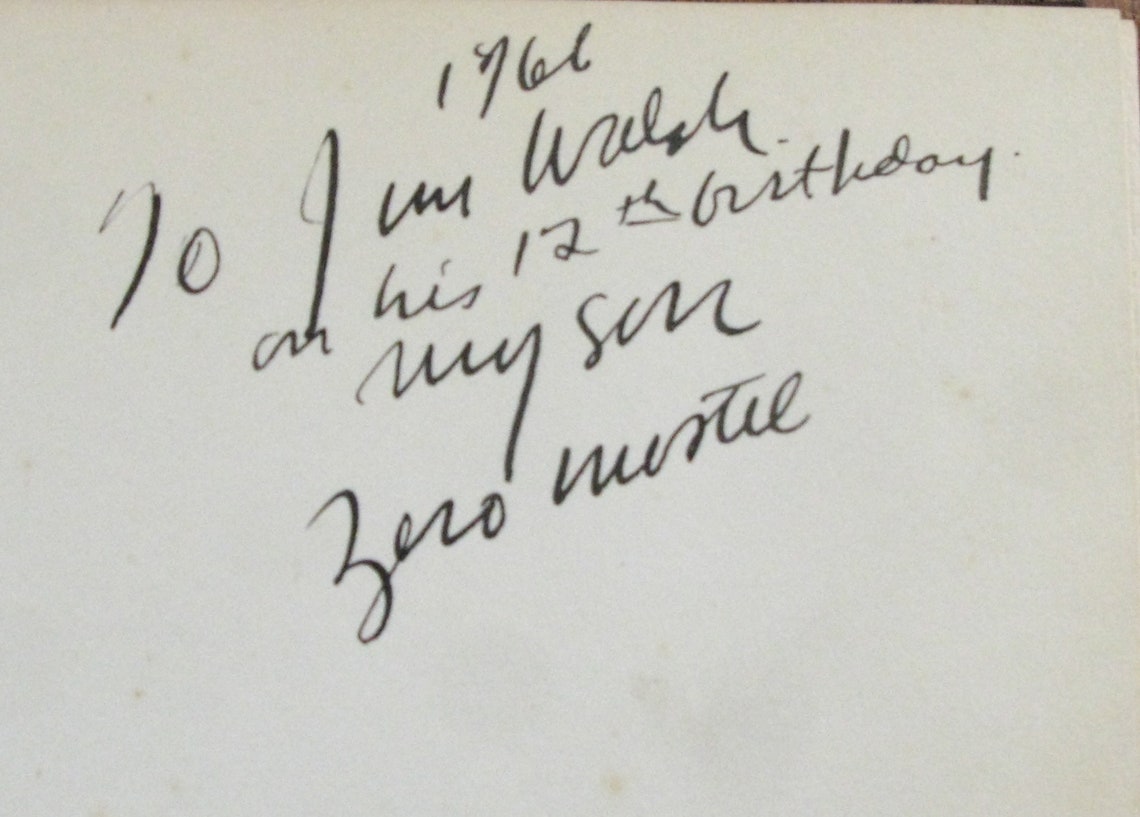 1966
To Jim Walsh
on his 12th birthday.
my son
Zero Mostel